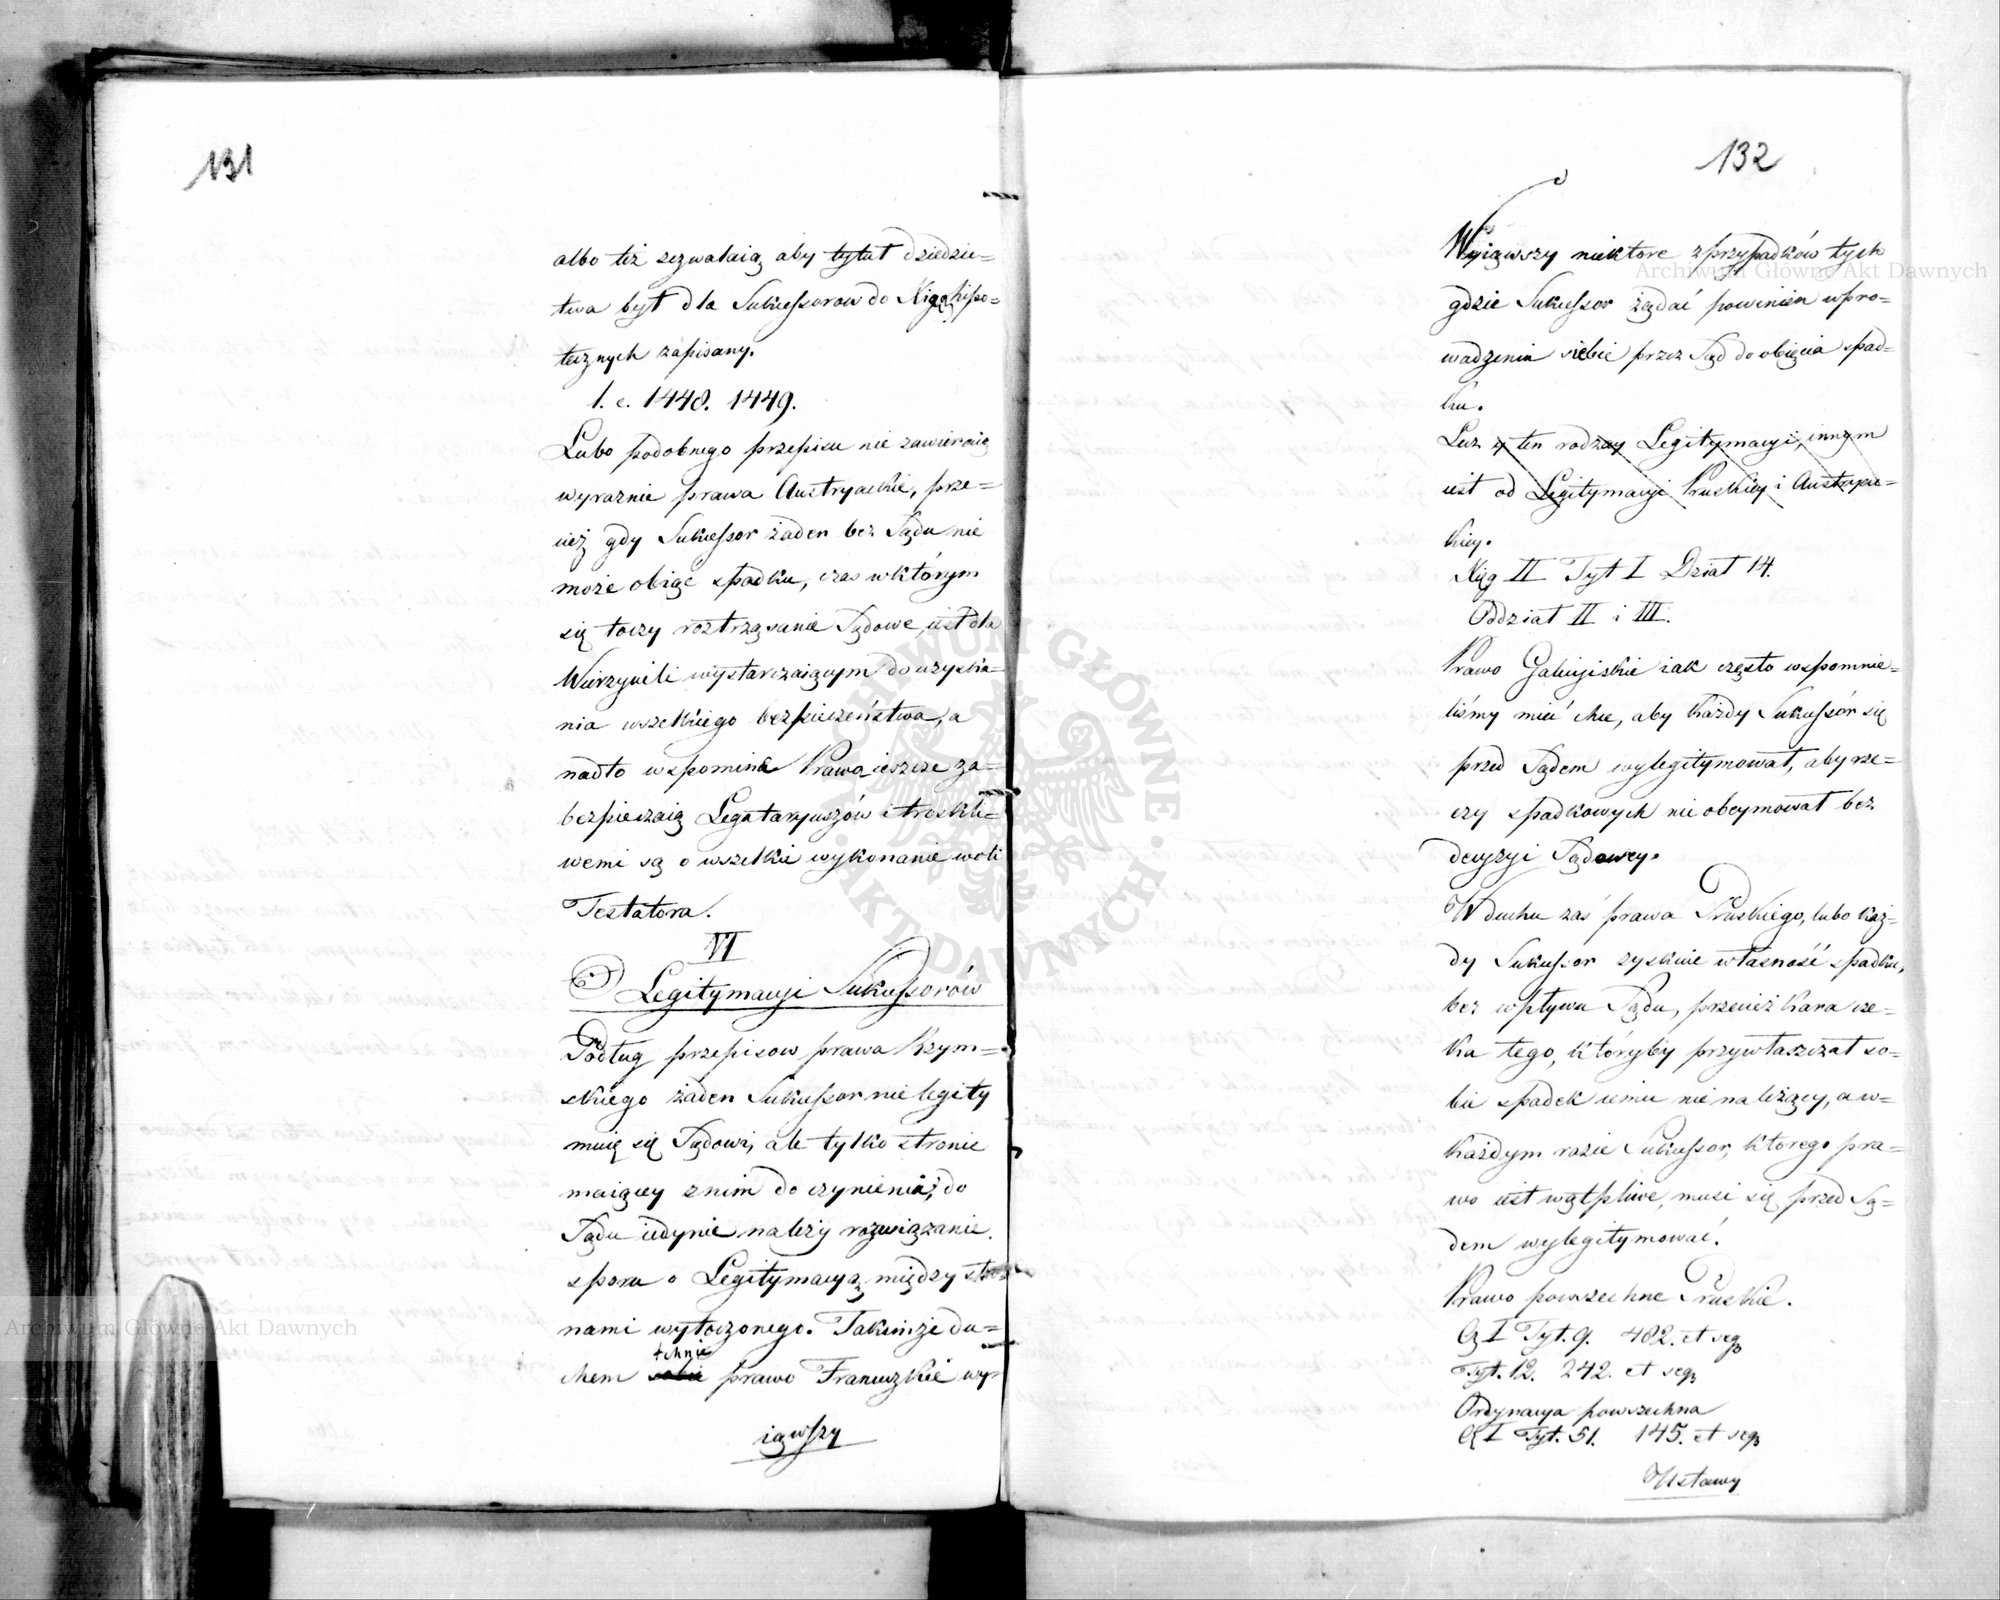 131
albo też zezwalaią aby tytuł dziedzic=
twa był dla Sukcessorow do Xiąg hipo=
tecznych zapisany.
l. c. 1448. 1449.
Lubo podobnego przepisu nie zawieraią
wyraznie prawa Austryackie, prze=
cież gdy Sukcessor żaden bez Sądu nie
może obiąć spadku, czas w którym
się toczy roztrząsanie Sądowe, iest dla
Wierzycieli wystarczaiącym do uzyska=
nia wszelkiego bezpieczeństwa, a
nadto wspomine Prawa ieszcze za=
bezpieczaią Legataryuszów i troskli=
wemi są o wszelkie wykonanie woli
Testatora.
VI
O Legitymacyi Sukcessorów
Podług przepisow prawa Rzym=
skiego żaden Sukcessor nie legity
muię się Sądowi, ale tylko stronie
maiącey z nim do czynienia; do
Sądu iedynie należy rozwiązanie
sporu o Legitymacyą między stro=
nami wytoczonego. Takimże du=
tchnie
chem sobie prawo Francuzkie wy=
iąwszy
132
Wyiąwszy niektore z przypadków tych
gdzie Sukcessor żądać powinien wpro=
wadzenia siebie przez Sąd do obięcia spad=
ku.
Lecz y ten rodzay Legitymacyi, innym
iest od Legitymacyi Pruskiey i Austryac=
kiey.
Xięg II Tyt I Dział 14.
Oddział II i III.
Prawo Galicyiskie iak często wspomnie=
liśmy mieć chce, aby każdy Sukcessór się
przed Sądem wylegitymował, aby rze=
czy spadkowych nie obeymował bez
decyzyi Sądowey.
W duchu zaś prawa Pruskiego, lubo każ=
dy Sukcessor zyskuie własność spadku,
bez wpływu Sądu, przecież kara cze=
ka tego, któryby przywłaszczał so=
bie spadek iemu nie należący, a w=
każdym razie Sukcessor, ktorego pra=
wo iest wątpliwe, musi się przed Są=
dem wylegitymować.
Prawo powszechne Pruskie.
Cz I Tyt. 9. 482. et seq
Tyt. 12. 242. et seq
Ordynacya powszechna
Cz I Tyt. 51. 145. et seq
Ustawy
Archiwum Główne Akt Dawnych
Archiwum Główne Akt Dawnych
ARCHIWUM GŁÓWNE · AKT DAWNYCH ·